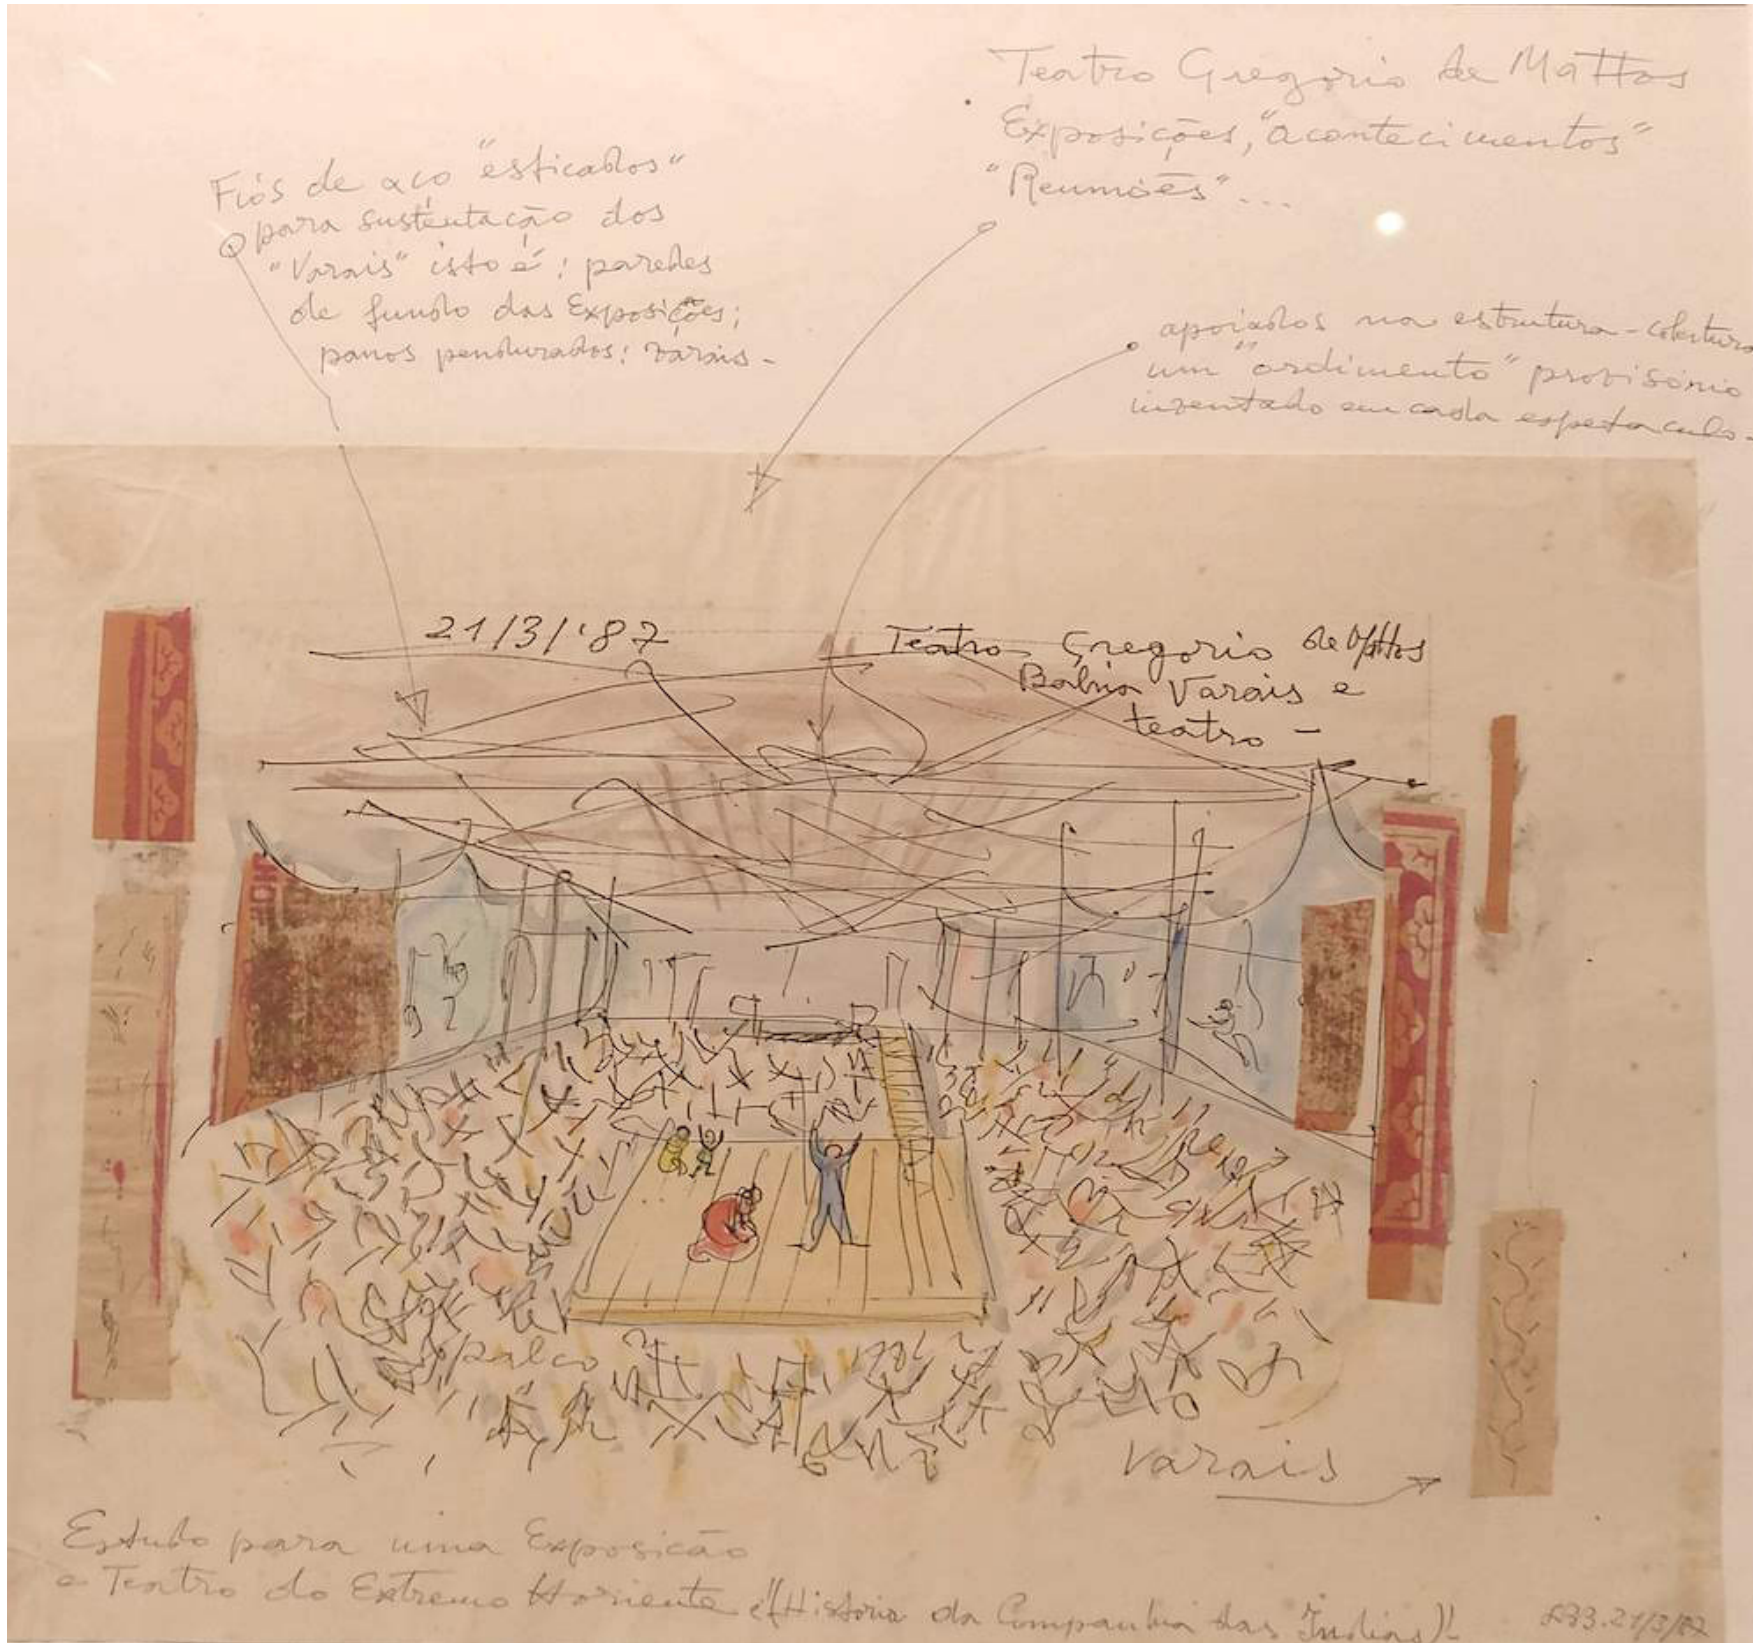 Teatro Gregorio de Mattos
Exposições, "acontecimentos"
"Reuniões"...
Fios de aço "esticados"
para sustentação dos
"Varais" isto é: paredes
de fundo das Exposições;
panos pendurados: varais-
apoiados na estrutura-cobertura
um "ordimento" provisório
inventado em cada espetaculo-
21/3/'87
Teatro Gregorio de Mattos
Bahia Varais e
teatro -
palco
Varais
Estudo para uma Exposição
e Teatro do Extremo Horiente (Historia da Companhia das Indias)!
21/3/87